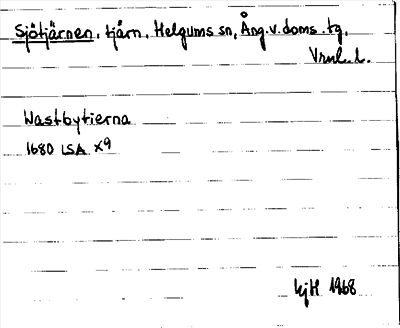 Sjötjärnen, tjärn, Helgums sn, Ång.v.doms.tg,
Vrml.d.
Wastbytierna
1680 LSA X9
kjH 1968